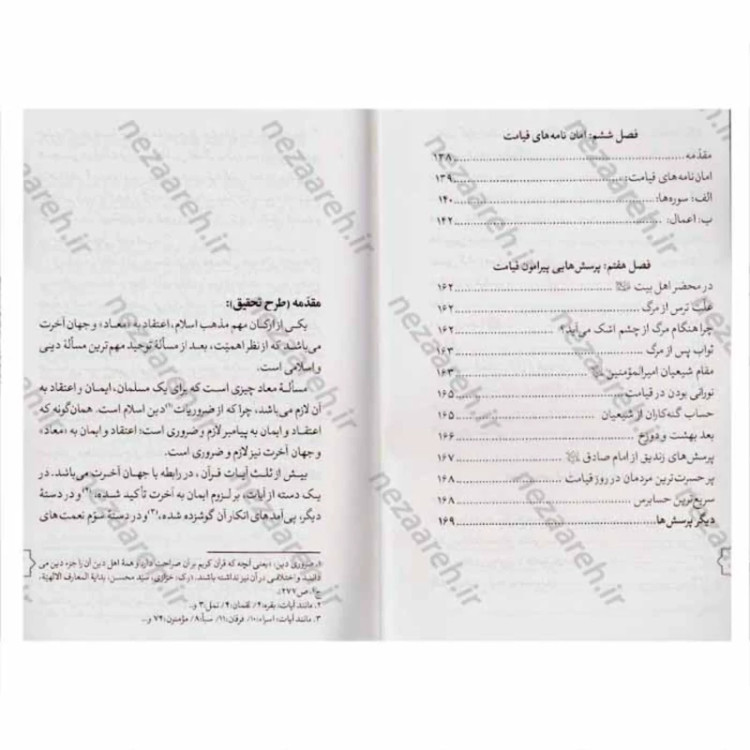 فصل ششم: امان نامه‌های قیامت
مقدّمه ........ ۱۳۸
امان‌نامه‌های قیامت: ........ ۱۳۹
الف: سوره‌ها: ........ ۱۴۰
ب: اعمال: ........ ۱۴۲
فصل هفتم: پرسش‌هایی پیرامون قیامت
در محضر اهل بیت ........ ۱۶۲
علّت ترس از مرگ ........ ۱۶۲
چرا هنگام مرگ از چشم اشک می‌آید؟ ........ ۱۶۲
ثواب پس از مرگ ........ ۱۶۳
مقام شیعیان امیرالمؤمنین ........ ۱۶۳
نورانی بودن در قیامت ........ ۱۶۵
حساب گنه‌کاران از شیعیان ........ ۱۶۵
بعد بهشت و دوزخ ........ ۱۶۶
پرسش‌های زندیق از امام صادق ........ ۱۶۷
پر حسرت‌ترین مردمان در روز قیامت ........ ۱۶۸
سریع‌ترین حسابرس ........ ۱۶۸
دیگر پرسش‌ها ........ ۱۶۹
مقدّمه (طرح تحقیق):
یکی از ارکان مهم مذهب اسلام، اعتقاد به «معاد» و جهان آخرت
می‌باشد که از نظر اهمیّت، بعد از مسألهٔ توحید مهم‌ترین مسألهٔ دینی
و اسلامی است.
مسألهٔ معاد چیزی است که برای یک مسلمان، ایمان و اعتقاد به
آن لازم می‌باشد، چرا که از ضروریات(۱) دین اسلام است. همان‌گونه که
اعتقاد و ایمان به پیامبر لازم و ضروری است؛ اعتقاد و ایمان به «معاد»
و جهان آخرت نیز لازم و ضروری است.
بیش از ثلث آیات قرآن، در رابطه با جهان آخرت می‌باشد. در
یک دسته از آیات، بر لزوم ایمان به آخرت تأکید شده،(۲) و در دستهٔ
دیگر، پی‌آمدهای انکار آن گوشزده شده،(۳) و در دستهٔ سوّم نعمت‌های
۱. ضروری دین، «یعنی آنچه که قرآن کریم بر آن صراحت دارد و همهٔ اهل دین آن را جزء دین می
دانند و اختلافی در آن نیز نداشته باشند. (رک: خرّازی، سیّد محسن، بدایة المعارف الالهیّة،
ج۲، ص۲۷۷).
۲. مانند آیات: بقره:۴/ لقمان:۴/ نمل:۳ و...
۳. مانند آیات: اسراء:۱۰/ فرقان:۱۱/ سبأ:۸/ مؤمنون:۷۴ و...
nezaareh.ir